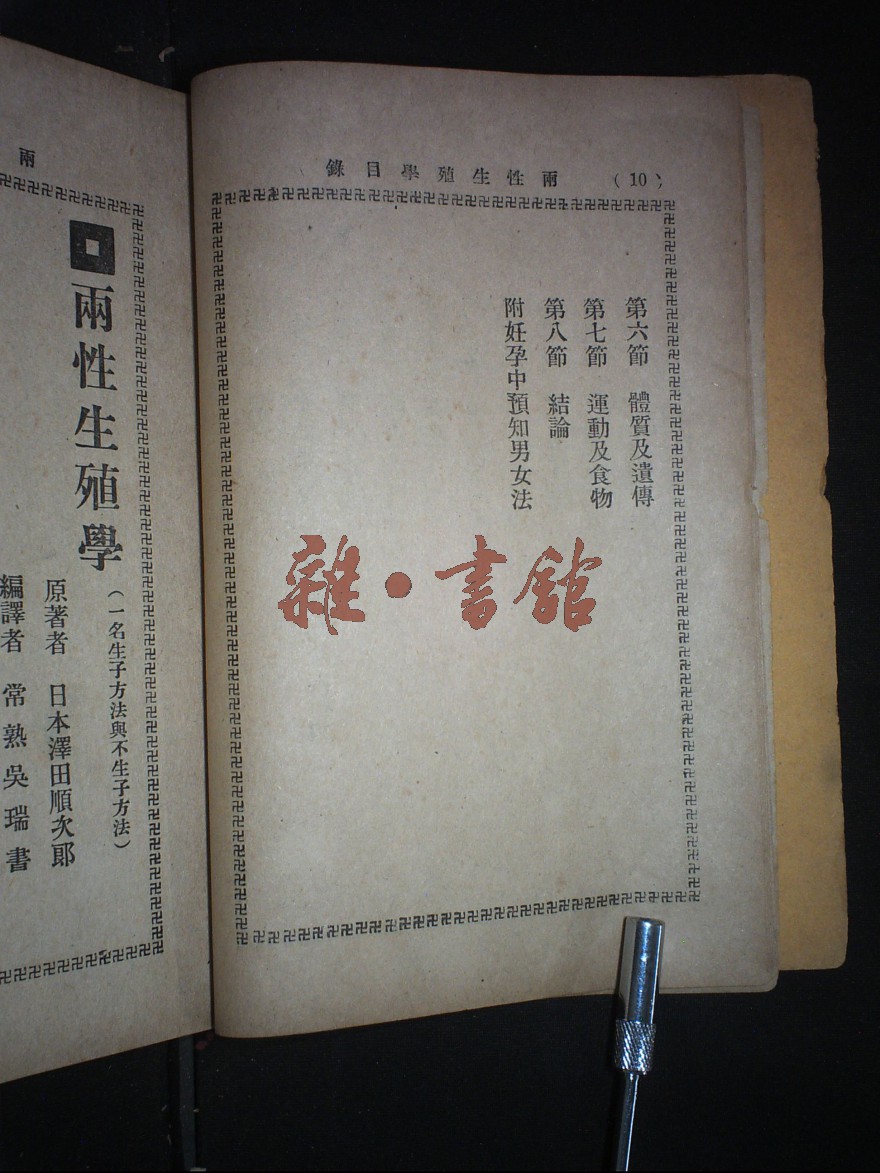 兩性生殖學目錄 （10）
第六節 體質及遺傳
第七節 運動及食物
第八節 結論
附妊孕中預知男女法
雜·書館
兩
兩性生殖學
（一名生子方法與不生子方法）
原著者 日本澤田順次郎
編譯者 常熟吳瑞書